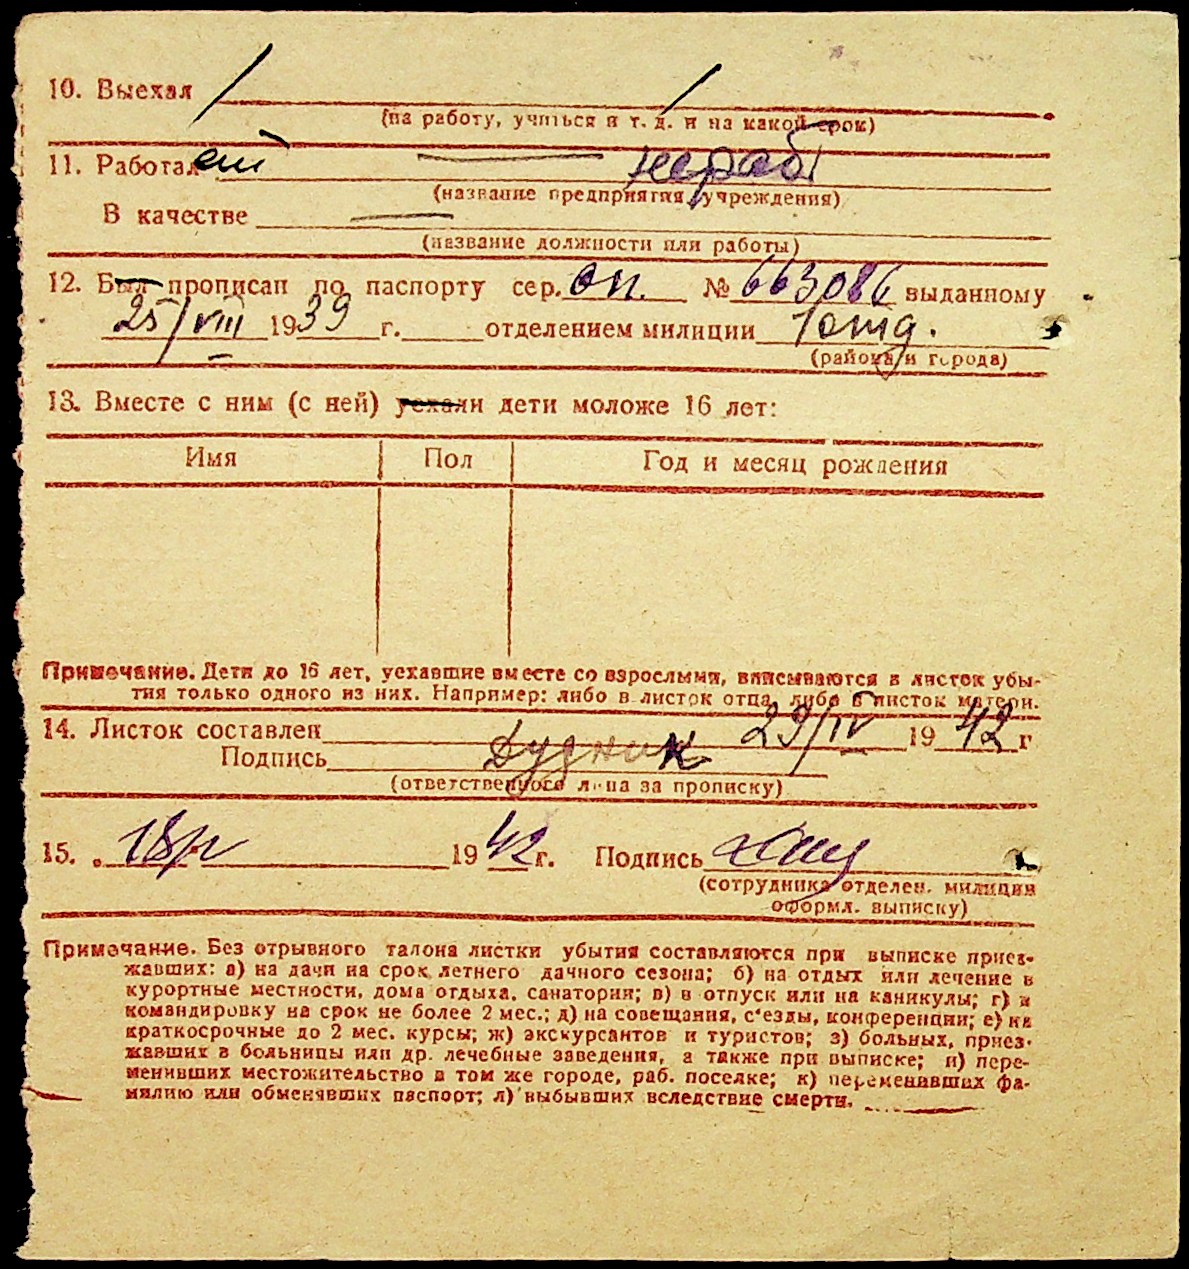 10. Выехал
(на работу, учиться и т. д. и на какой срок)
11. Работал ет нераб
(название предприятия, учреждения)
В качестве
(название должности или работы)
12. Был прописан по паспорту сер. оп. № 663086 выданному
25/VIII 1939 г. отделением милиции 1 отд.
(района и города)
13. Вместе с ним (с ней) уехали дети моложе 16 лет:
Имя Пол Год и месяц рождения
Примечание. Дети до 16 лет, уехавшие вместе со взрослыми, вписываются в листок убы-
тия только одного из них. Например: либо в листок отца, либо в листок матери.
14. Листок составлен 29/IV 1942 г
Подпись Дудник
(ответственного лица за прописку)
15. 1942 г. Подпись
(сотрудника отделен. милиции
оформл. выписку)
Примечание. Без отрывного талона листки убытия составляются при выписке приез-
жавших: а) на дачи на срок летнего дачного сезона; б) на отдых или лечение в
курортные местности, дома отдыха, санатории; в) в отпуск или на каникулы; г) в
командировку на срок не более 2 мес.; д) на совещания, с'езды, конференции; е) на
краткосрочные до 2 мес. курсы; ж) экскурсантов и туристов; з) больных, приез-
жавших в больницы или др. лечебные заведения, а также при выписке; и) пере-
менивших местожительство в том же городе, раб. поселке; к) переменивших фа-
милию или обменявших паспорт; л) выбывших вследствие смерти.